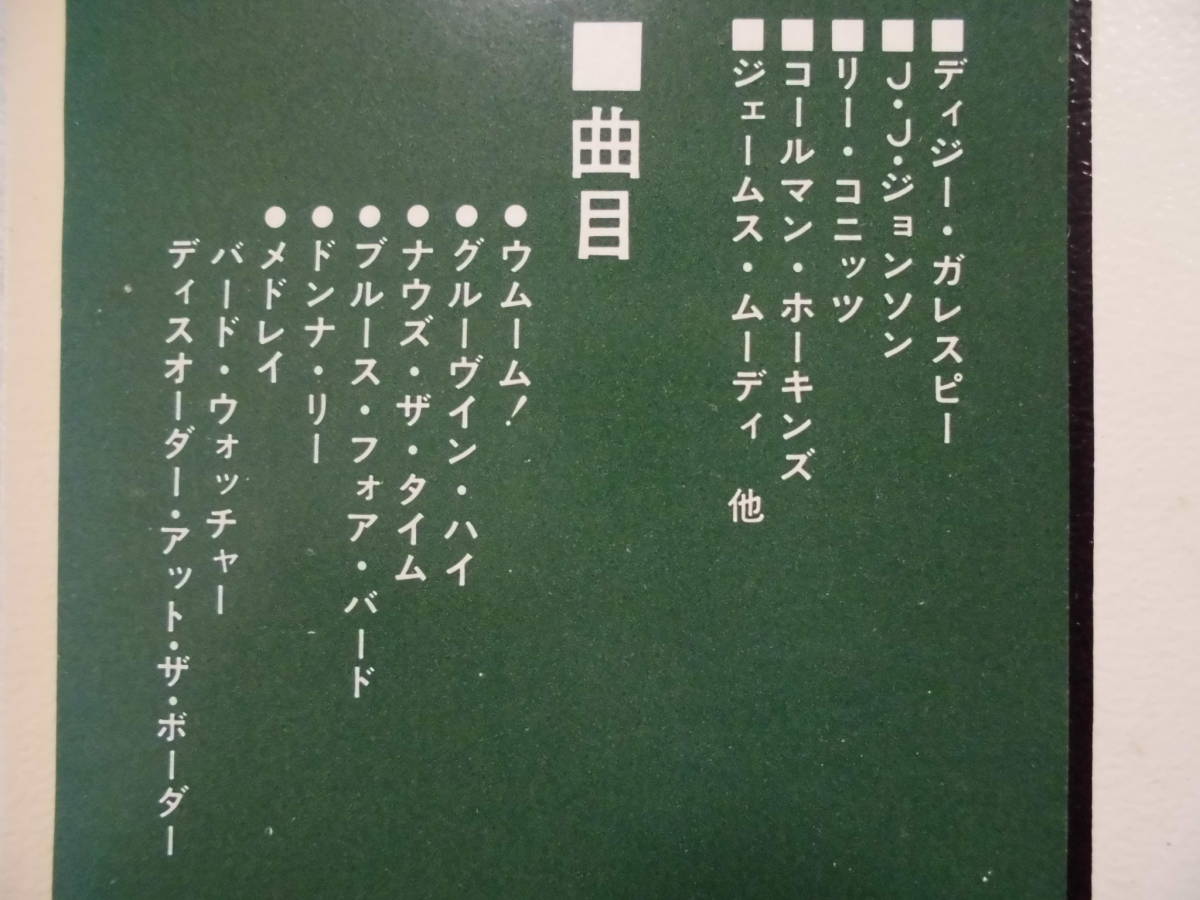 ■ディジー・ガレスピー
■J・J・ジョンソン
■リー・コニッツ
■コールマン・ホーキンズ
■ジェームス・ムーディ 他
■曲目
●ウムーム!
●グルーヴイン・ハイ
●ナウズ・ザ・タイム
●ブルース・フォア・バード
●ドンナ・リー
●メドレイ
バード・ウォッチャー
ディスオーダー・アット・ザ・ボーダー